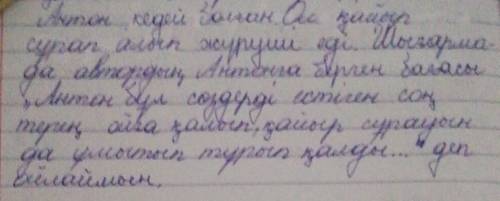 Антон кедей болған. Ол қайыр
сұрап алып жүруші еді. Шығарма-
да автордың Антонға берген бағасы
„Антон бұл сөздерді естіген соң
терең ойға қалып, қайыр сұрауын
да ұмытып тұрып қалды..." деп
ойлаймын.